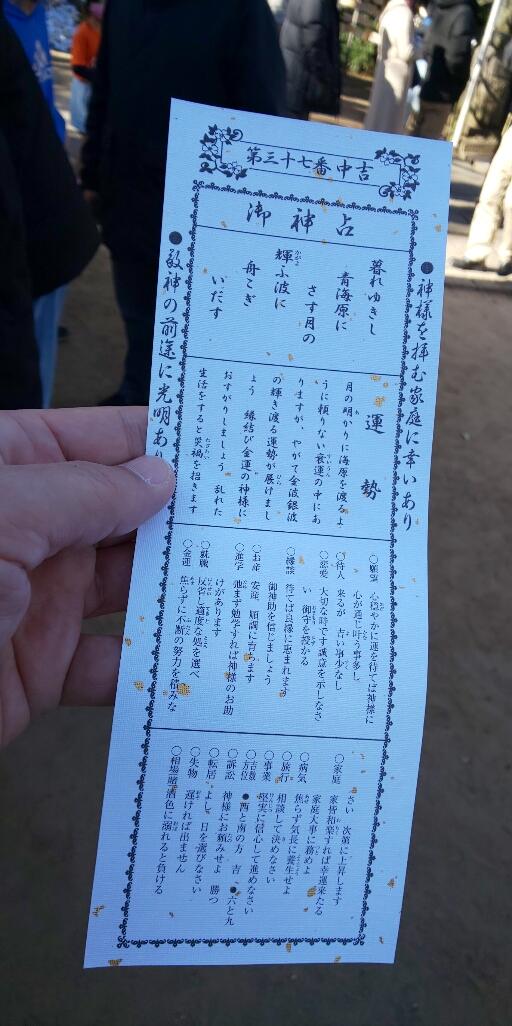 第三十七番中吉
御神占
●神様を拝む家庭に幸いあり
暮れゆきし
青海原に
さす月の
輝ふ波に
舟こぎ
いだす
●敬神の前途に光明あり
運勢
月の明かりに海原を渡るよ
うに頼りない衰運の中にあ
りますが、やがて金波銀波
の輝き渡る運勢が展けまし
よう 縁結び金運の神様に
おすがりしましょう 乱れた
生活をすると災禍を招きます
○願望 心穏やかに運を待てば神様に
心が通じ叶う事多し
○待人 来るが 吉い事少なし
○恋愛 大切な時です誠意を示しなさ
い 御守を授かる
○縁談 待てば良縁に恵まれます
御神助を信じましょう
○お産 安産 順調に育ちます
○進学 弛まず勉学すれば神様のお助
けがあります
○就職 反省と適度な処を選べ
○金運 焦らずに不断の努力を積みな
さい 次第に上昇します
○家庭 家皆和楽すれば幸運来たる
家庭大事に務めよ
○病気 焦らず気長に養生せよ
○旅行 相談して決めなさい
○事業 堅実に信心して進めなさい
○吉数方位 ●西と南の方 吉 ●六と九
○訴訟 神様にお願みせよ 勝つ
○転居 よし 日を選びなさい
○失物 遅ければ出ません
○相場賭 酒色に溺れると負ける